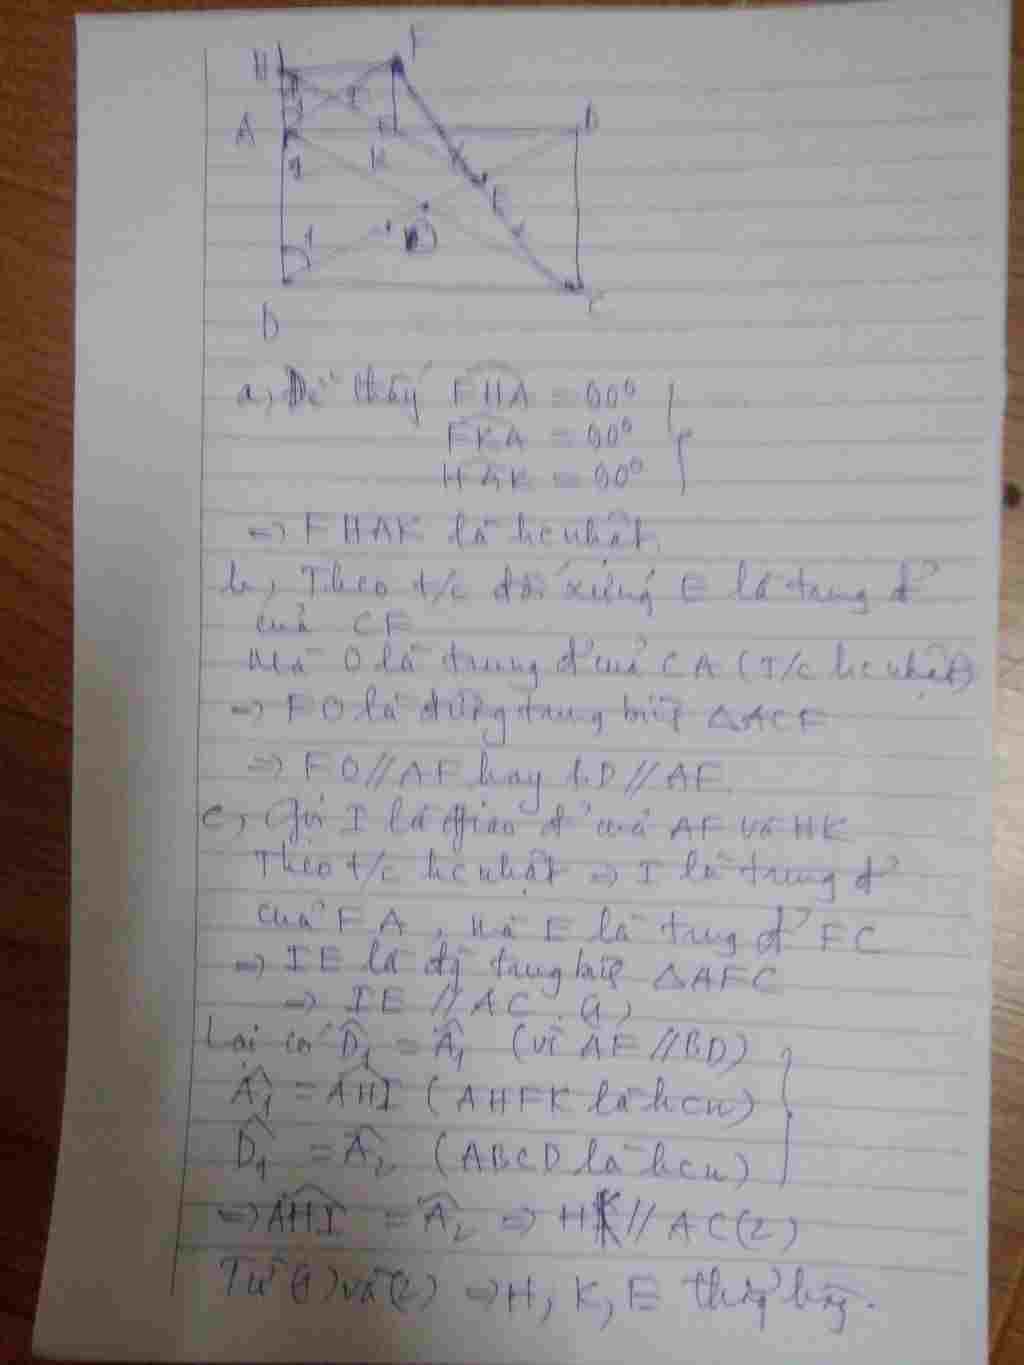 H
F
I
A
B
K
E
1
1
O
D
C
a, Dễ thấy FHA = 90⁰
FKA = 90⁰
HAK = 90⁰
=> FHAK là hcnhật.
b, Theo t/c đối xứng E là trung đ'
của CF
Mà O là trung đ' của CA (T/c hcnhật)
=> EO là đường trung bình △ACF
=> EO // AF hay BD // AF.
c, Gọi I là giao đ' của AF và HK
Theo t/c hcnhật => I là trung đ'
của FA, mà E là trung đ' FC
=> IE là đg trung bình △AFC
=> IE // AC (1)
Lại có D₁ = A₁ (vì AF // BD)
A₁ = AHI (AHFK là hcn)
D₁ = A₂ (ABCD là hcn)
=> AHI = A₂ => HK // AC (2)
Từ (1) và (2) => H, K, E thẳng hàng.